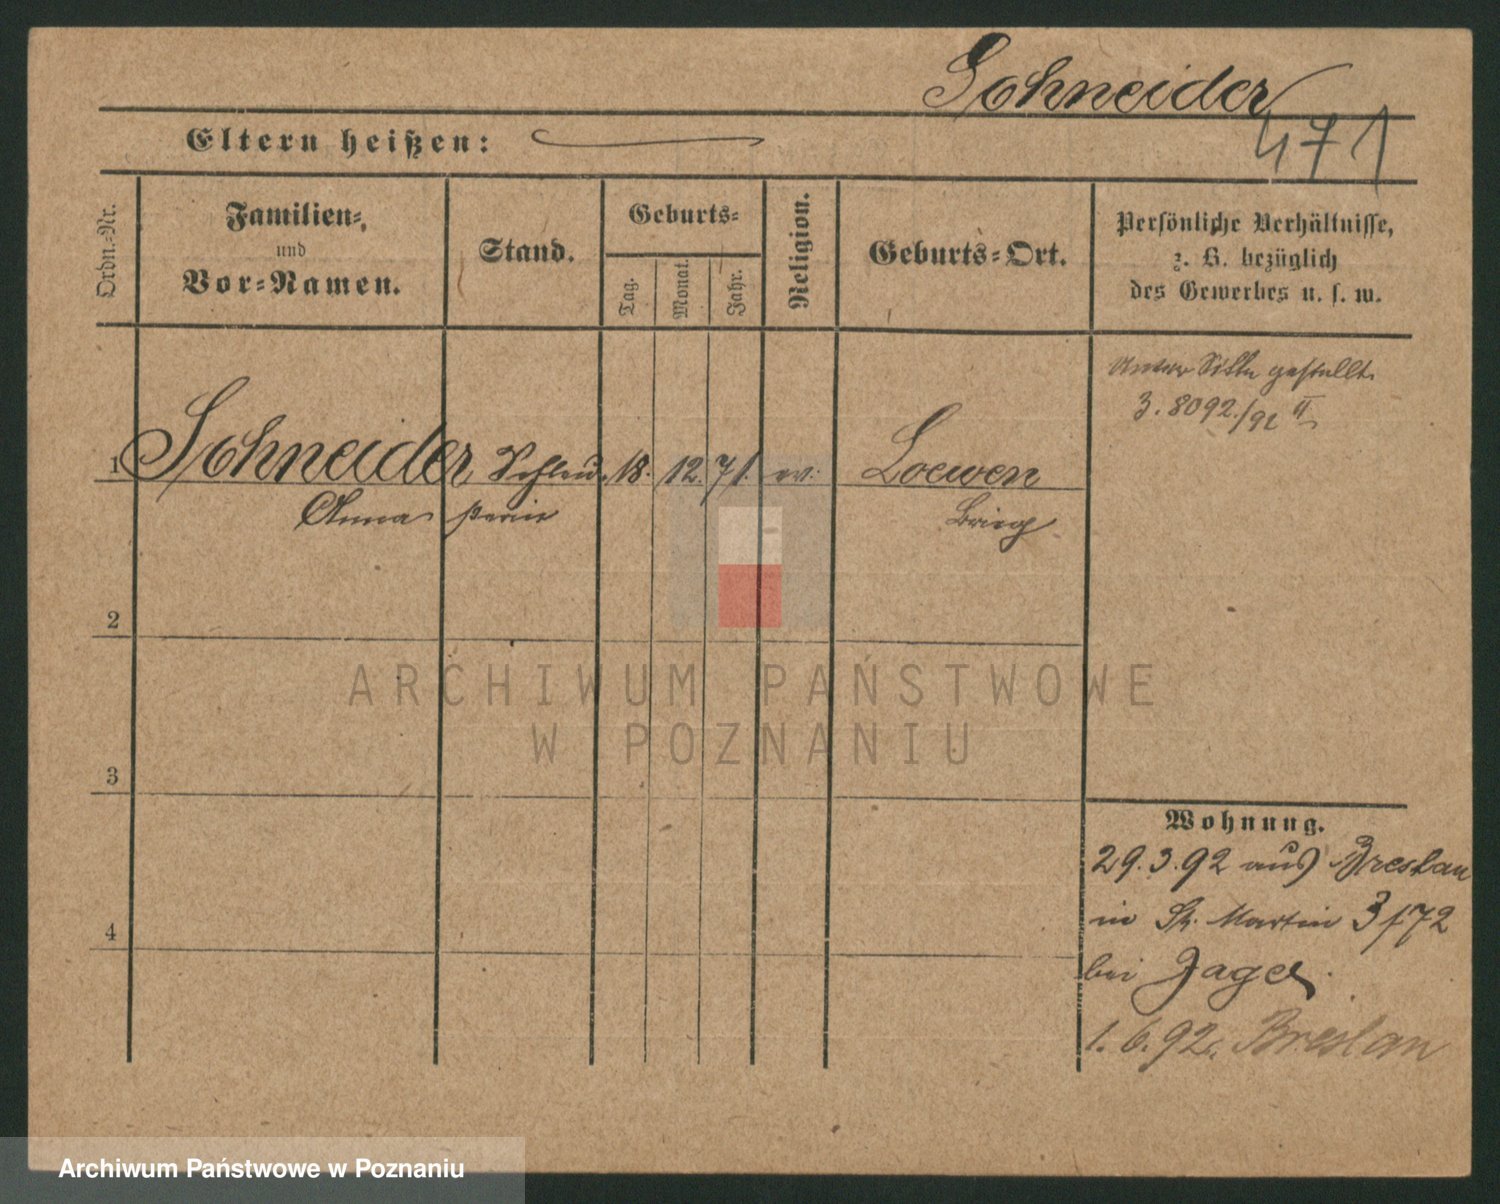 Schneider
471
Eltern heißen:
Ordn.-Nr.
Familien-,
und
Vor-Namen.
Stand.
Geburts-
Tag.
Monat.
Jahr.
Religion.
Geburts-Ort.
Persönliche Verhältnisse,
z. B. bezüglich
des Gewerbes u. s. w.
Unter Sitte gestellt
3. 8092./92 II
1 Schneider Schleu- 18. 12. 71. ev. Loewen
Anna ßerin Brieg
2
3
4
ARCHIWUM PAŃSTWOWE
W POZNANIU
Wohnung.
29.3.92 aus Breslau
in St. Martin 3/72
bei Jager
1.6.92. Breslau
Archiwum Państwowe w Poznaniu